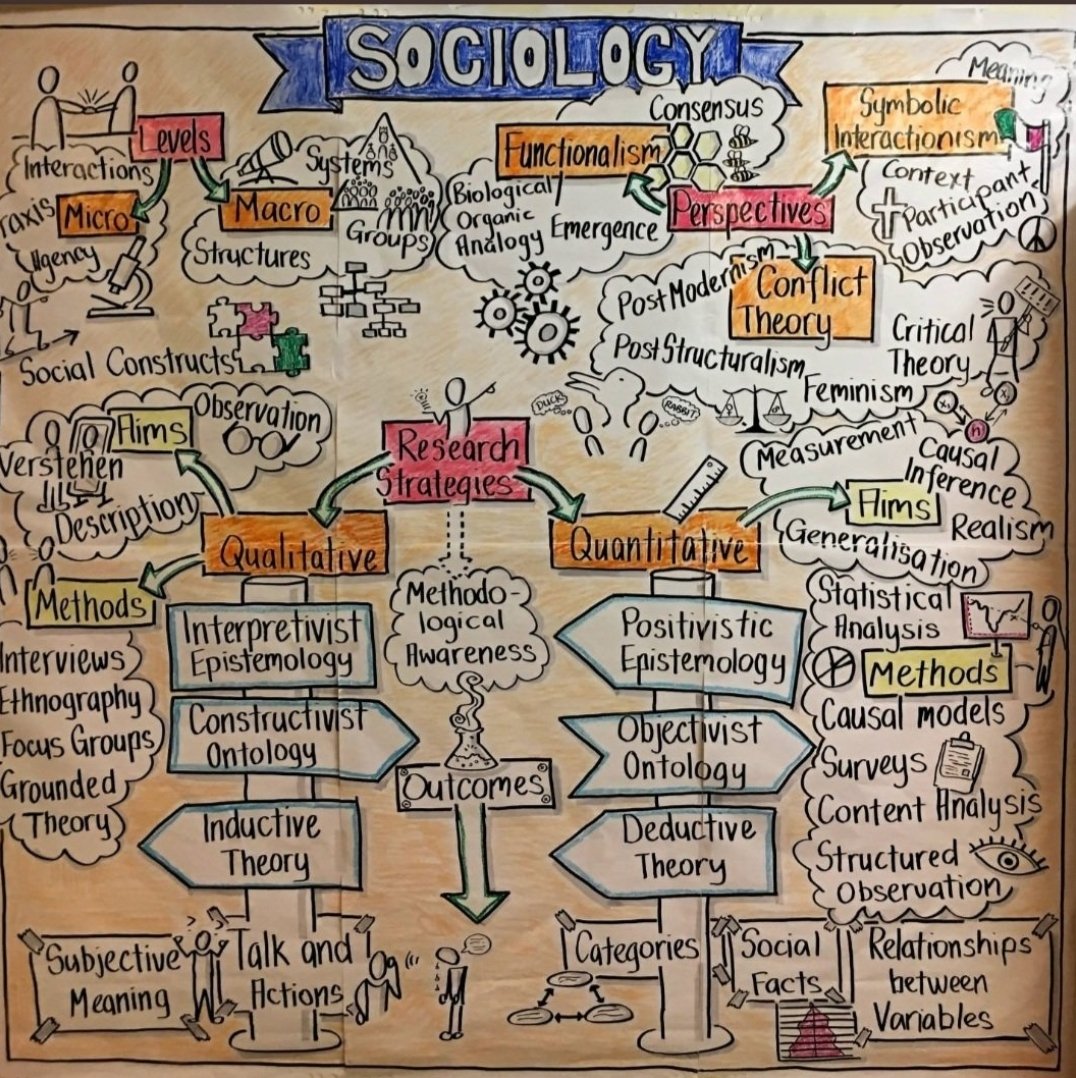 SOCIOLOGY
Levels
Interactions
Micro
Agency
Systems
Macro
Groups
Structures
Social Constructs
Consensus
Functionalism
Biological
Organic
Analogy
Emergence
Perspectives
Meaning
Symbolic
Interactionism
Context
Participant
Observation
Post Modernism
Conflict
Theory
Post Structuralism
Critical
Theory
Feminism
DUCK
RABBIT
Research
Strategies
Observation
Aims
Verstehen
Description
Qualitative
Methods
Interviews
Ethnography
Focus Groups
Grounded
Theory
Interpretivist
Epistemology
Constructivist
Ontology
Inductive
Theory
Methodo-
logical
Awareness
Outcomes
Quantitative
Measurement
Causal
Inference
Aims
Realism
Generalisation
Positivistic
Epistemology
Objectivist
Ontology
Deductive
Theory
Statistical
Analysis
Methods
Causal models
Surveys
Content Analysis
Structured
Observation
Subjective
Meaning
Talk and
Actions
Categories
Social
Facts
Relationships
between
Variables